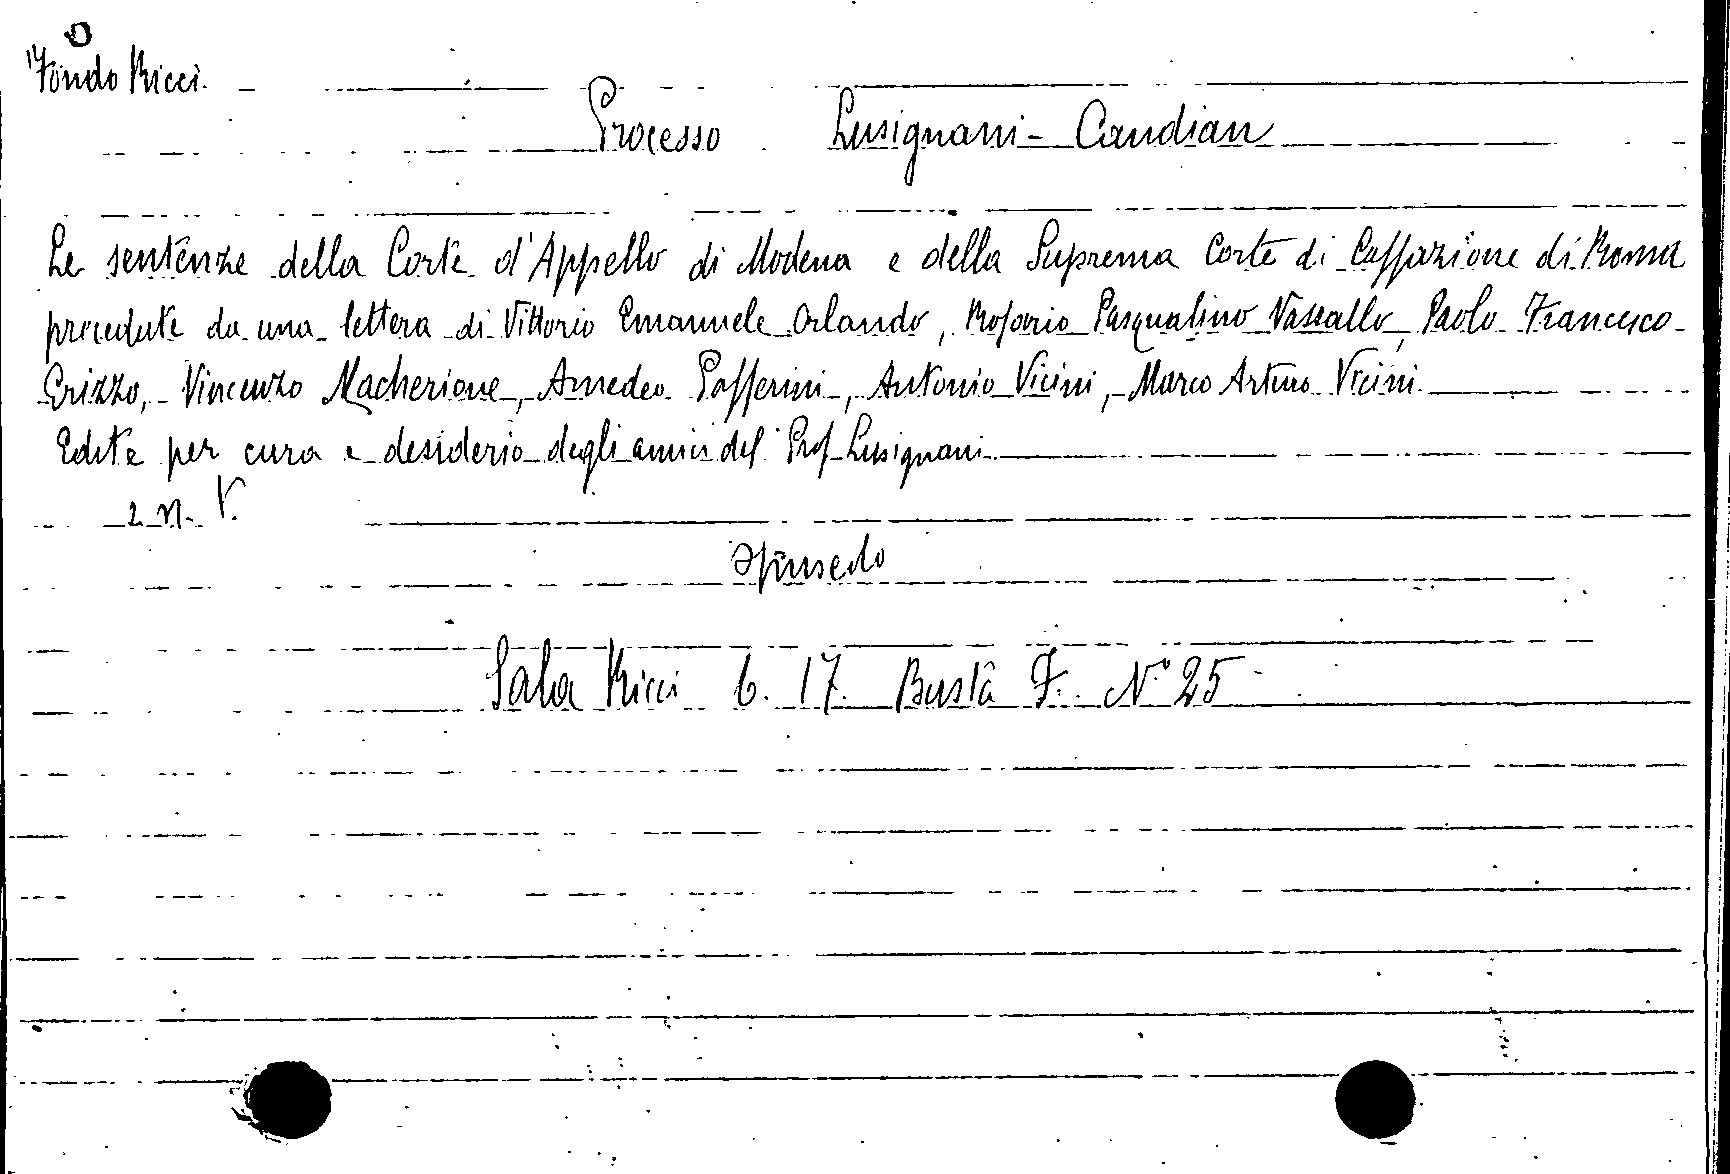 Fondo Ricci.
Processo Lusignani - Candian
Le sentenze della Corte d'Appello di Modena e della Suprema Corte di Cassazione di Roma
precedute da una lettera di Vittorio Emanuele Orlando, Rosario Pasqualino Vassallo, Paolo Francesco
Erizzo, Vincenzo Macherione, Amedeo Passerini, Antonio Vicini, Marco Arturo Vicini.
Edite per cura e desiderio degli amici del Prof Lusignani
Opuscolo
Sala Ricci 6. 17. Busta F. N° 25